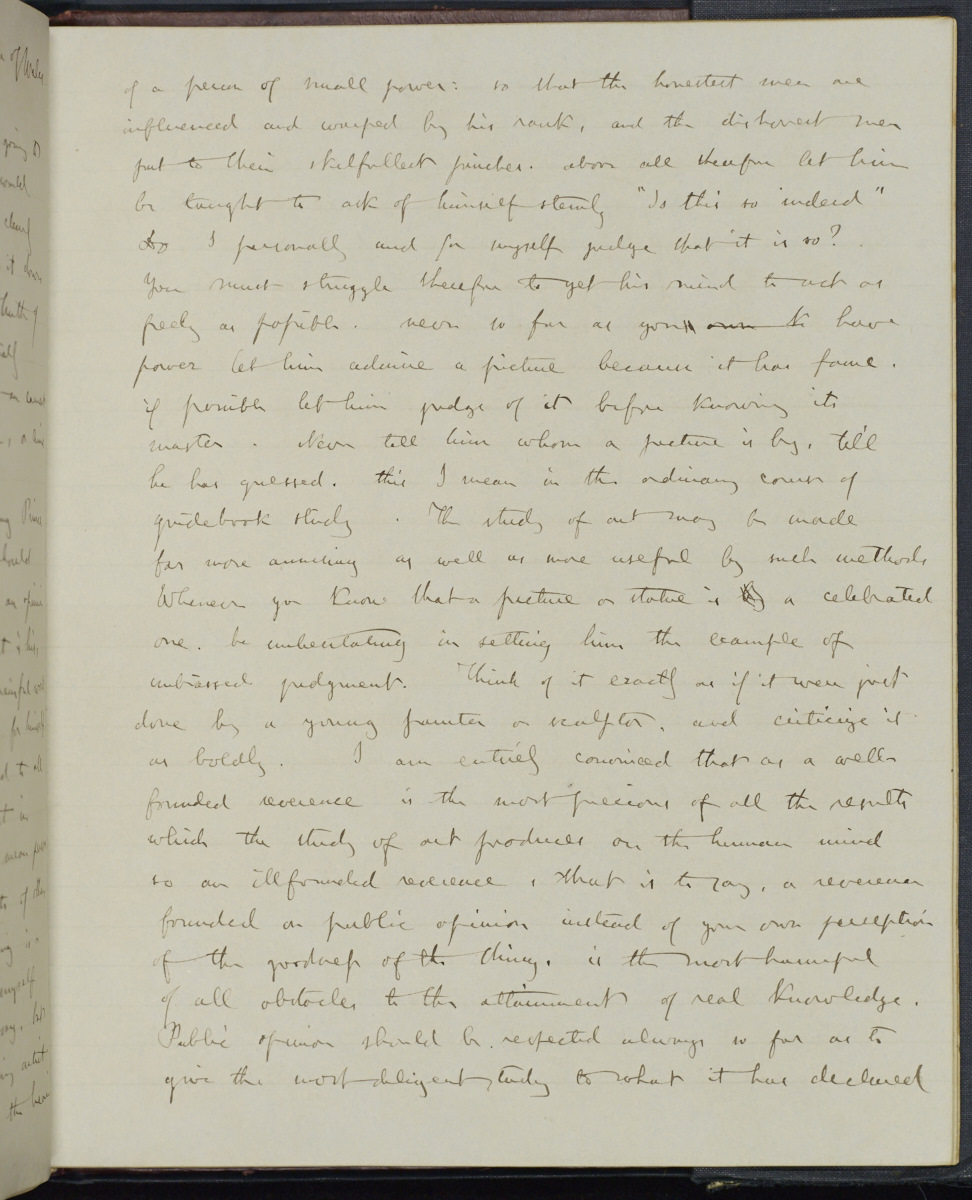 of a person of small power: so that the honestest men are
influenced and warped by his rank, and the dishonest men
put to their skilfullest finches. above all therefore let him
be taught to ask of himself sternly "Is this so indeed"
Do I personally and for myself judge that it is so?
You must struggle therefore to get his mind to act as
freely as possible. never so far as you own to have
power let him admire a picture because it has fame.
if possible let him judge of it before knowing its
master. Never tell him whom a picture is by, till
he has guessed. this I mean in the ordinary course of
guidebook study. The study of art may be made
far more amusing as well as more useful by such methods
Whenever you know that a picture or statue is a celebrated
one. be unhesitating in setting him the example of
unbiassed judgment. Think of it exactly as if it were just
done by a young painter or sculptor, and criticize it
as boldly. I am entirely convinced that as a well
founded reverence is the most precious of all the results
which the study of art produces on the human mind
so an illfounded reverence, that is to say, a reverence
founded on public opinion instead of your own perception
of the goodness of the thing, is the most harmful
of all obstacles to the attainment of real knowledge.
Public opinion should be respected always so far as to
give the most diligent study to what it has declared